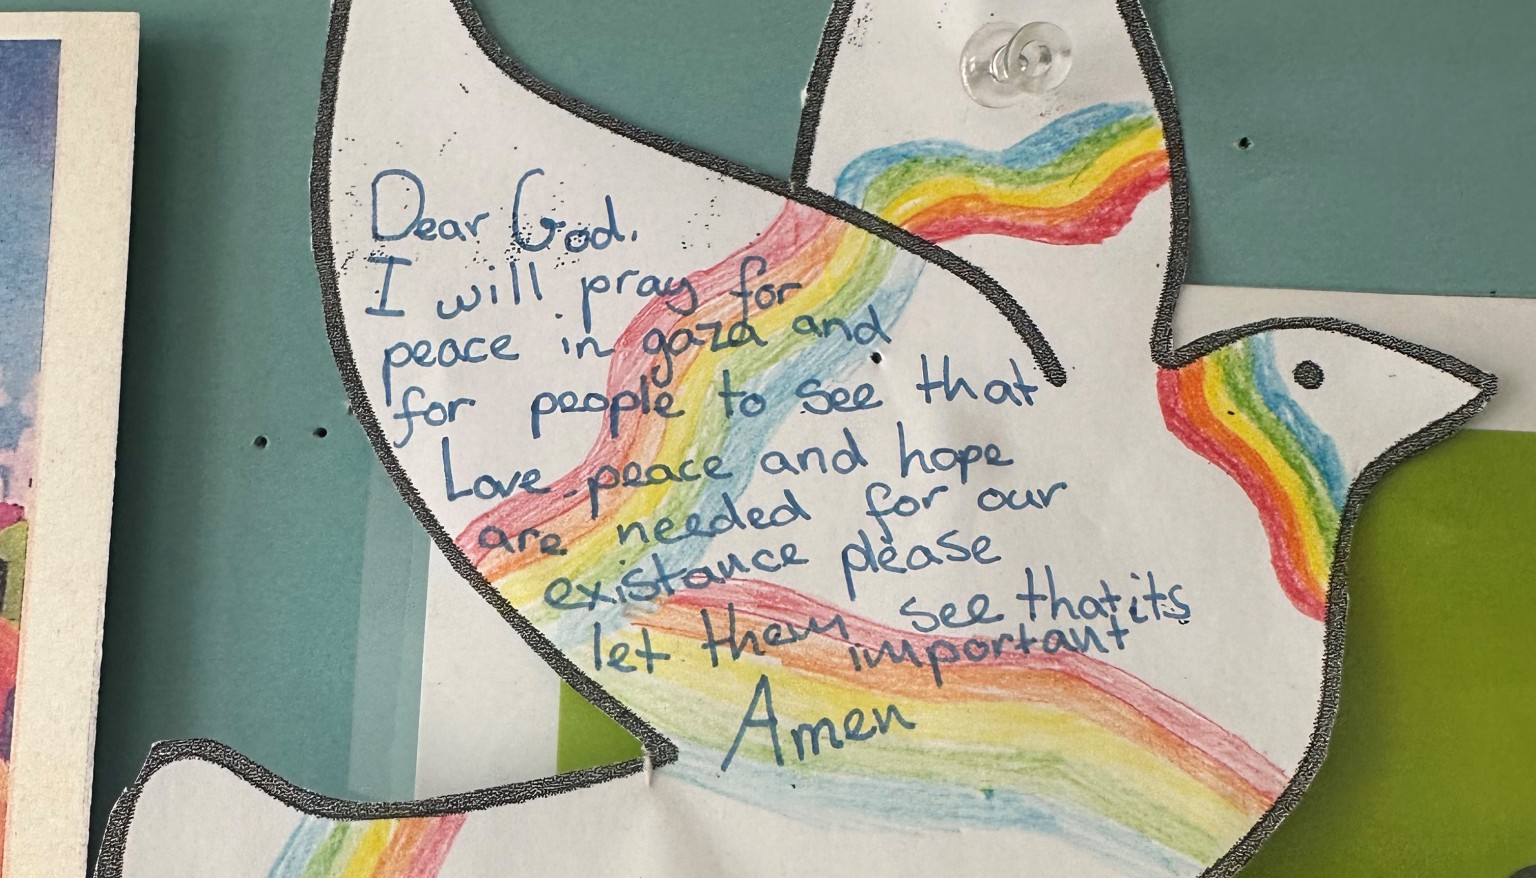 Dear God.
I will pray for
peace in gaza and
for people to see that
Love peace and hope
are needed for our
existance please
let them see that its
important
Amen